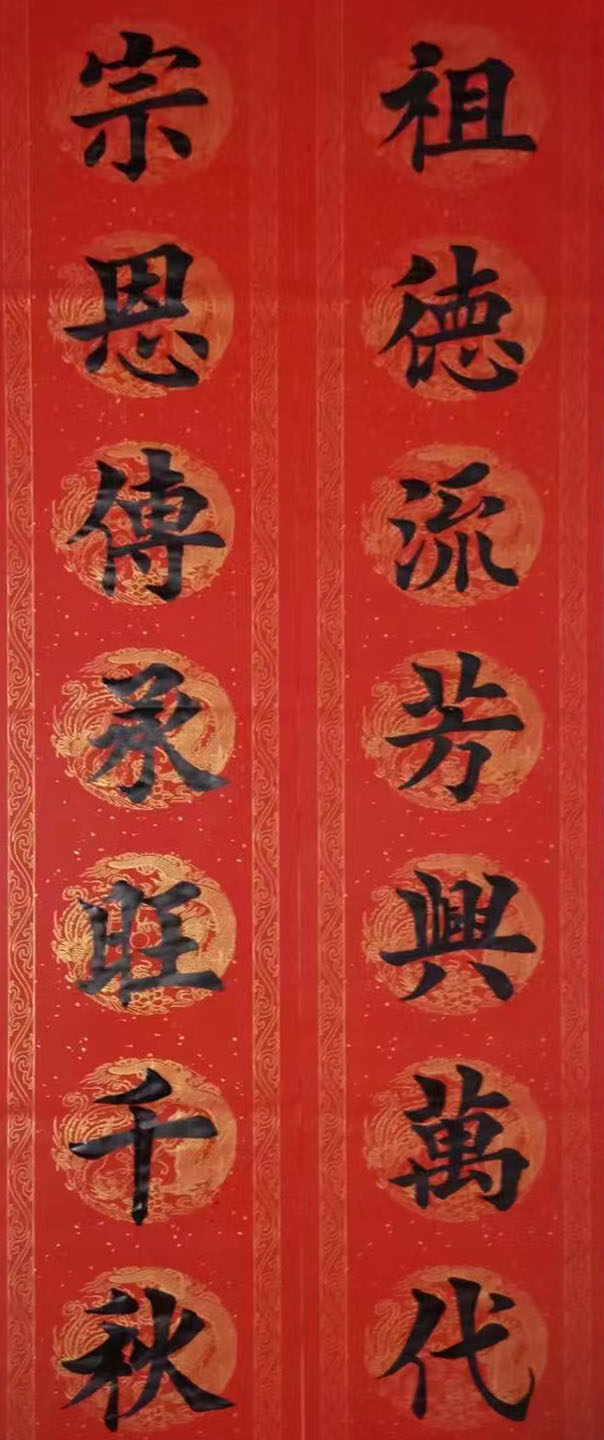 祖德流芳興萬代
宗恩傳承旺千秋